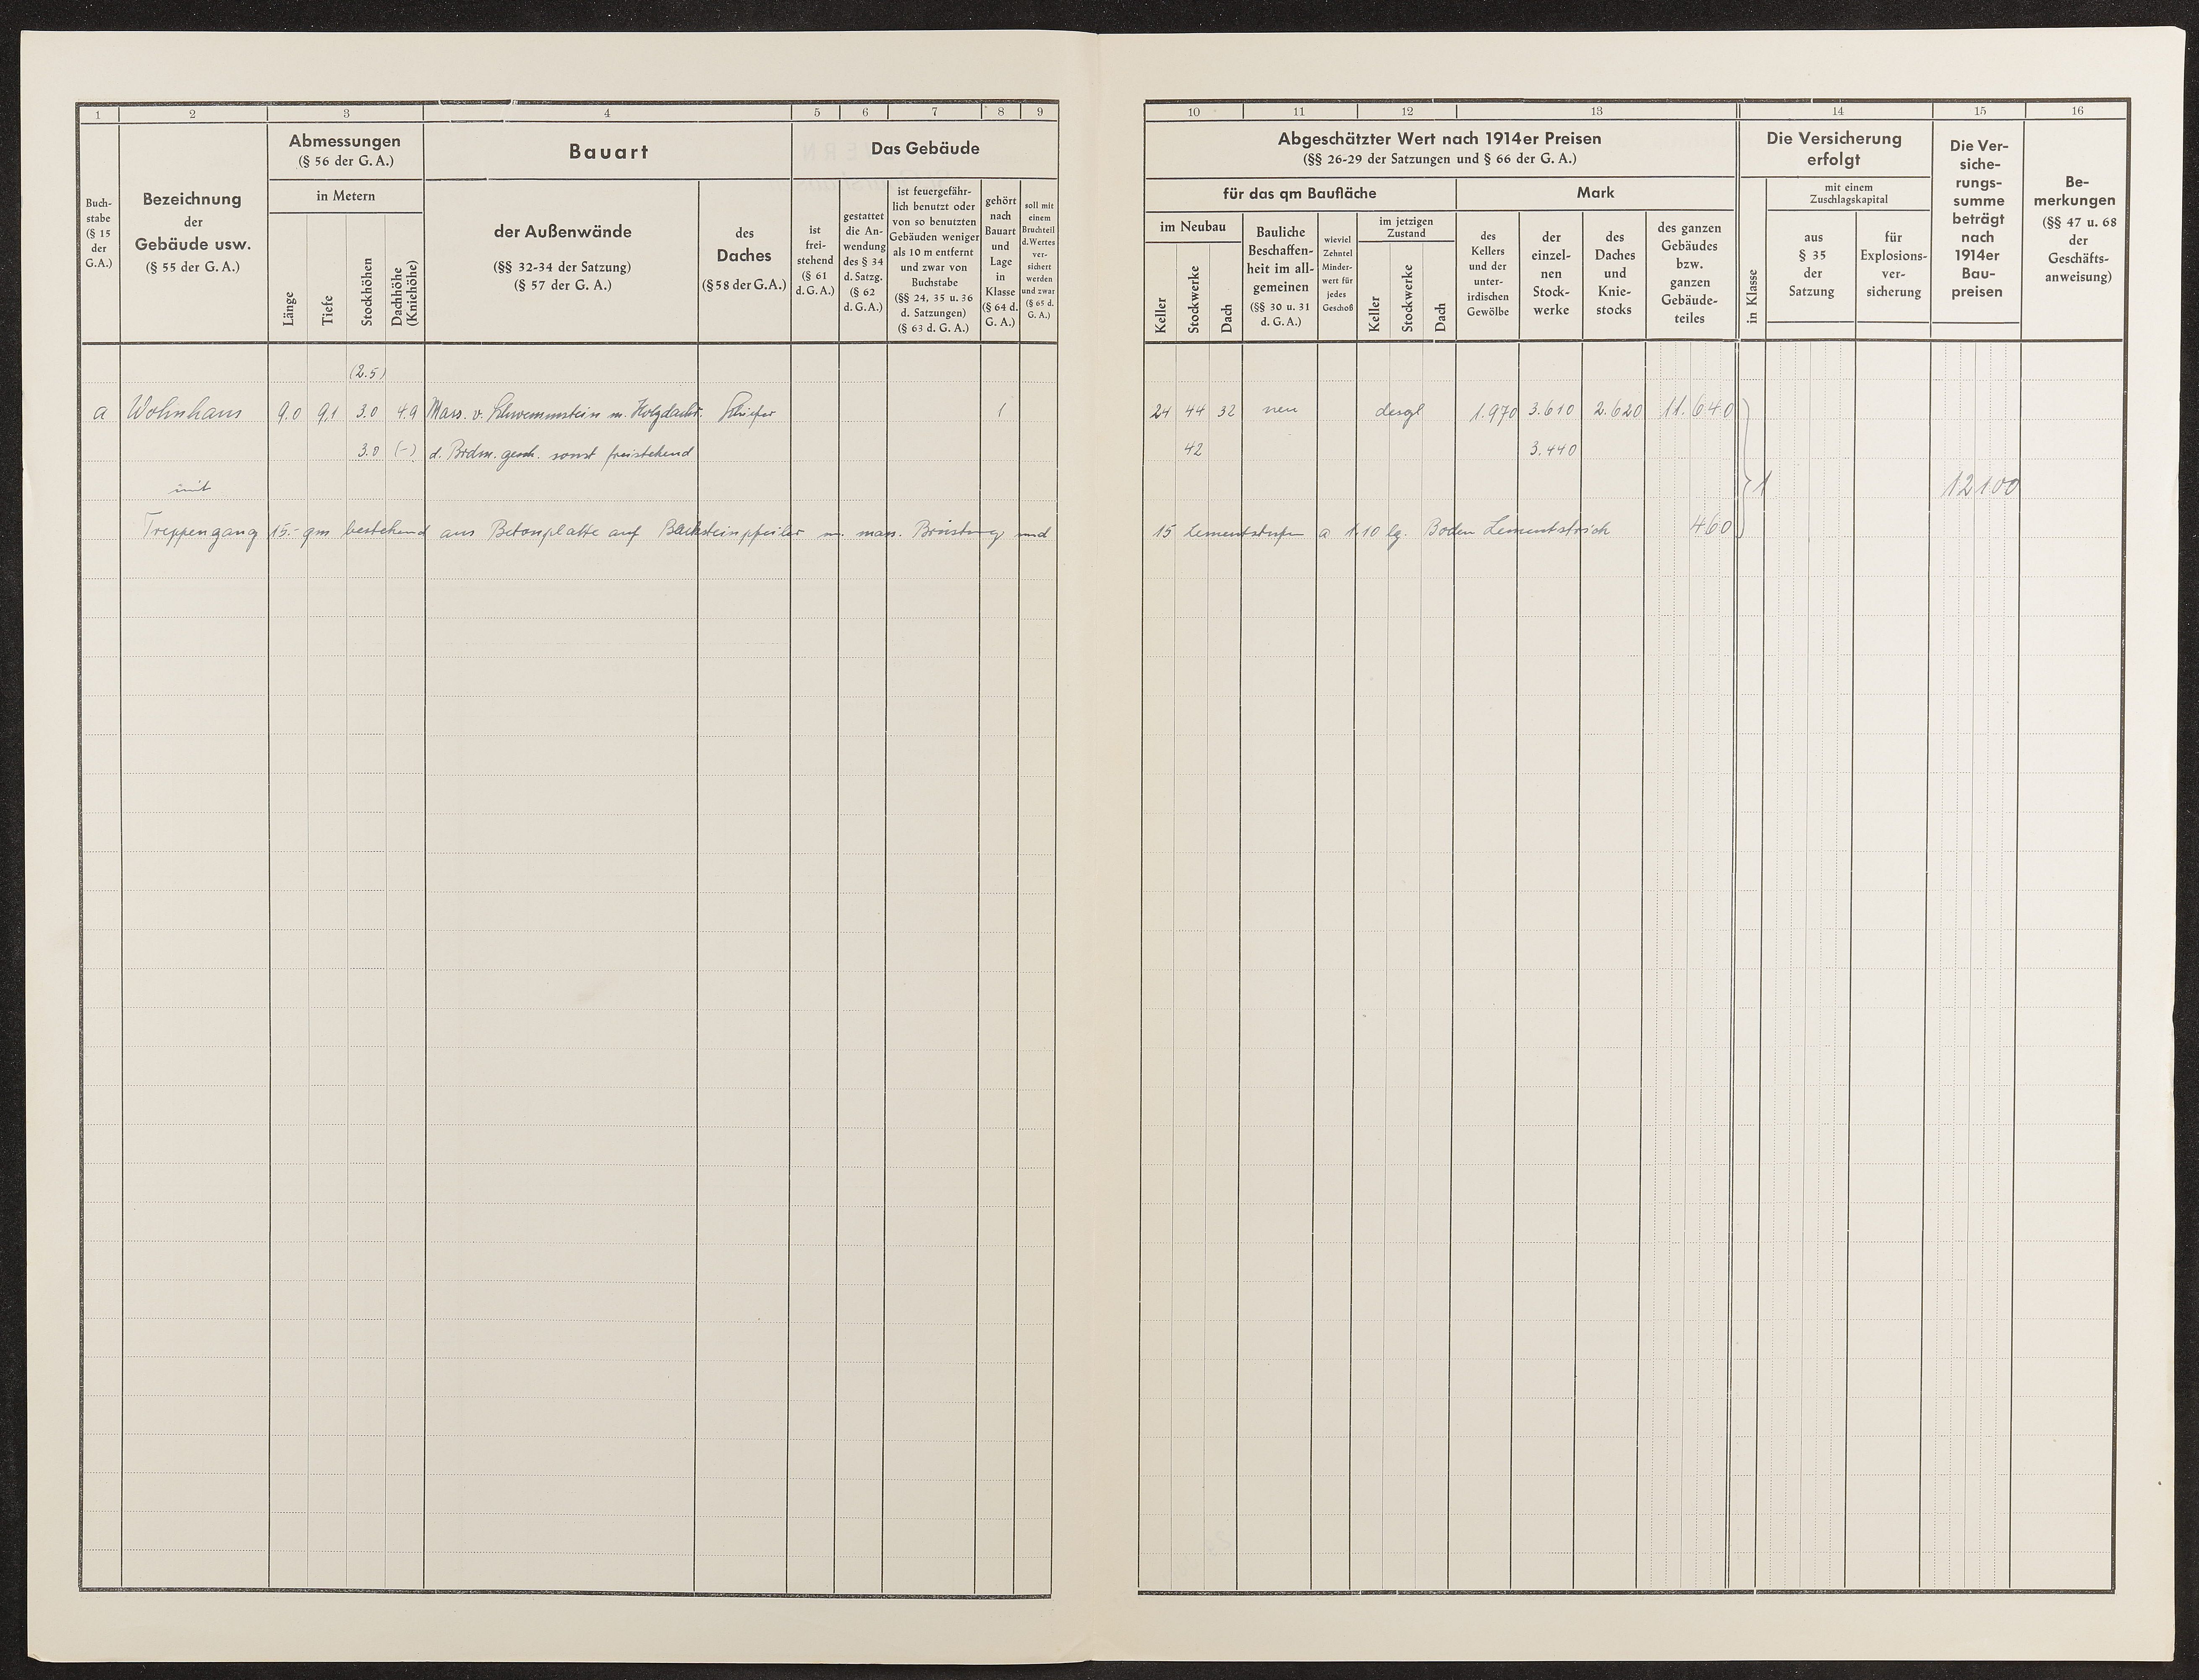 1 2 3 4 5 6 7 8 9
Buch-
stabe
(§ 15
der
G.A.)
Bezeichnung
der
Gebäude usw.
(§ 55 der G. A.)
Abmessungen
(§ 56 der G. A.)
in Metern
Länge
Tiefe
Stockhöhen
Dachhöhe
(Kniehöhe)
Bauart
der Außenwände
(§§ 32-34 der Satzung)
(§ 57 der G. A.)
des
Daches
(§ 58 der G. A.)
Das Gebäude
ist
frei-
stehend
(§ 61
d. G. A.)
gestattet
die An-
wendung
des § 34
d. Satzg.
(§ 62
d. G. A.)
ist feuergefähr-
lich benutzt oder
von so benutzten
Gebäuden weniger
als 10 m entfernt
und zwar von
Buchstabe
(§§ 24, 35 u. 36
d. Satzungen)
(§ 63 d. G. A.)
gehört
nach
Bauart
und
Lage
in
Klasse
(§ 64 d.
G. A.)
soll mit
einem
Bruchteil
d. Wertes
ver-
sichert
werden
und zwar
(§ 65 d.
G. A.)
(2.5)
a Wohnhaus 9.0 9,1 3.0 4.9 Mass. v. Schwemmstein m. Holzdachst. Schiefer 1
3.0 (-) d. Brdm. gesch. sonst freistehend
mit
Treppengang 15.- qm bestehend aus Betonplatte auf Backsteinpfeiler m. mass. Brüstung und
10 11 12 13 14 15 16
Abgeschätzter Wert nach 1914er Preisen
(§§ 26-29 der Satzungen und § 66 der G. A.)
für das qm Baufläche
im Neubau
Keller
Stockwerke
Dach
Bauliche
Beschaffen-
heit im all-
gemeinen
(§§ 30 u. 31
d. G. A.)
wieviel
Zehntel
Minder-
wert für
jedes
Geschoß
im jetzigen
Zustand
Keller
Stockwerke
Dach
Mark
des
Kellers
und der
unter-
irdischen
Gewölbe
der
einzel-
nen
Stock-
werke
des
Daches
und
Knie-
stocks
des ganzen
Gebäudes
bzw.
ganzen
Gebäude-
teiles
Die Versicherung
erfolgt
in Klasse
mit einem
Zuschlagskapital
aus
§ 35
der
Satzung
für
Explosions-
ver-
sicherung
Die Ver-
siche-
rungs-
summe
beträgt
nach
1914er
Bau-
preisen
Be-
merkungen
(§§ 47 u. 68
der
Geschäfts-
anweisung)
24 44 32 neu desgl 1.970 3.610 2.620 11.640
42 3.440
1 12100
15 Zementstufen a 1.10 lg. Boden Zementstrich 460